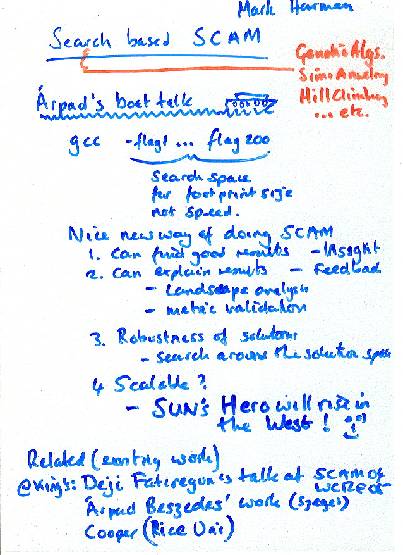 Mark Harman
Search based SCAM
Genetic Algs.
Simu Annealing
Hill Climbing
... etc.
Árpad's boat talk
gcc -flag1 ... flag200
Search space
for foot print size
not speed.
Nice new way of doing SCAM
1. Can find good results - Insight
2. Can explain results - Feedback
- Landscape analysis
- metric validation
3. Robustness of solutions
- Search around the solution space
4 Scalable?
- SUN's Hero will rise in
the West!
Related (existing work)
@King's: Deji Fatiregun's talk at SCAM04
WCRE04
Árpad Beszedes' work (Szeged)
Cooper (Rice Uni)